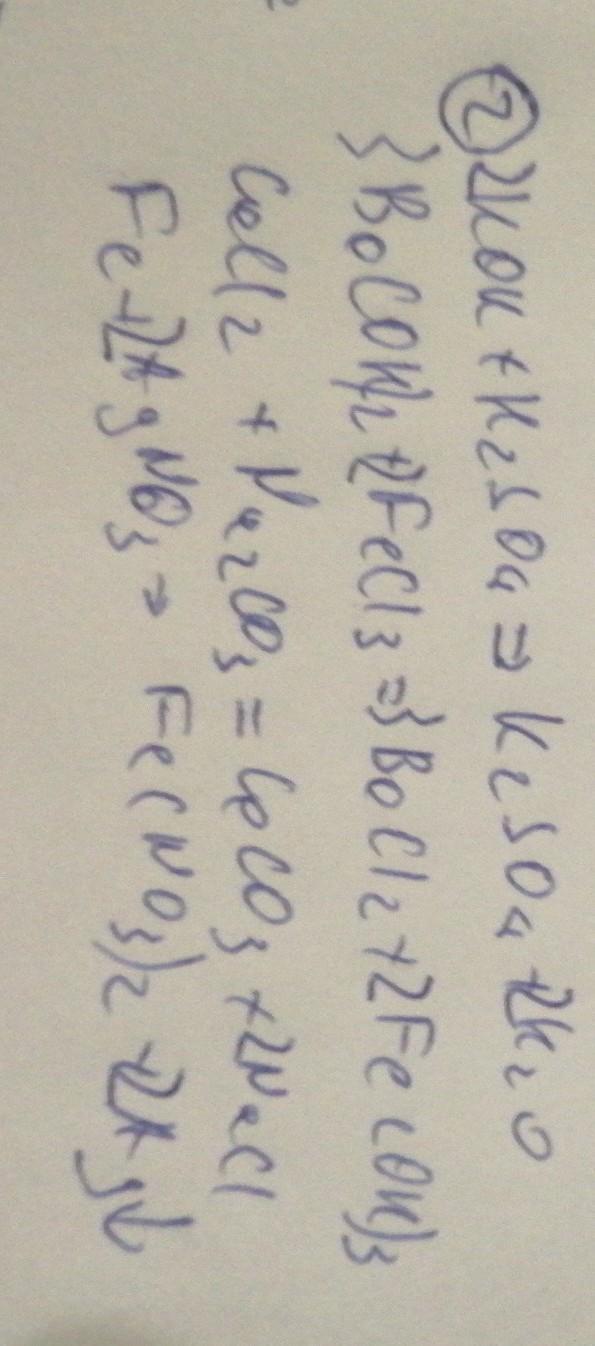 ② 2KOH + H2SO4 => K2SO4 + 2H2O
3Ba(OH)2 + 2FeCl3 => 3BaCl2 + 2Fe(OH)3
CaCl2 + Na2CO3 = CaCO3 + 2NaCl
Fe + 2AgNO3 → Fe(NO3)2 + 2Ag↓